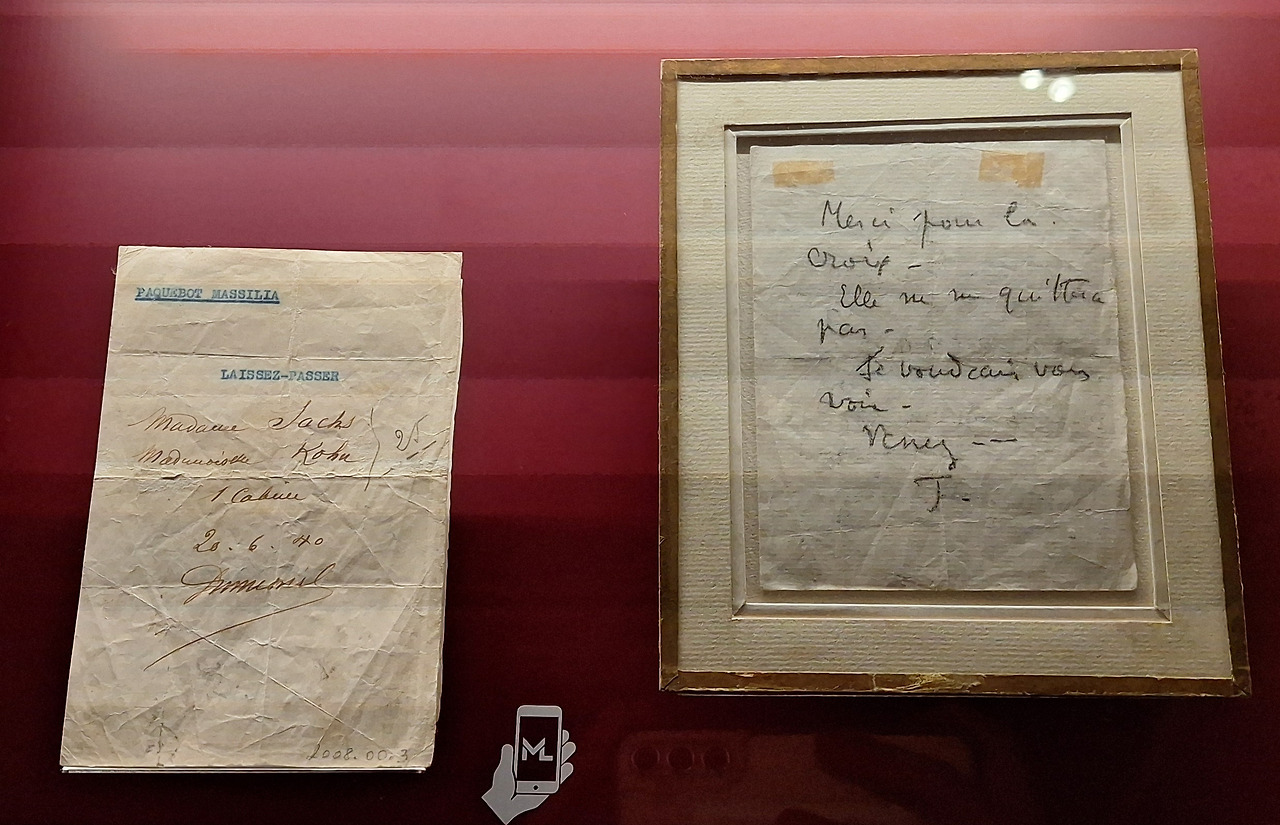 PAQUEBOT MASSILIA
LAISSEZ-PASSER
Madame Sachs
Mademoiselle Kohn
25
1 Cabine
20.6.40
2008.00.3
Merci pour la
Croix -
Elle ne me quittera
pas -
Je voudrais vous
voir -
Venez --
J -
ML